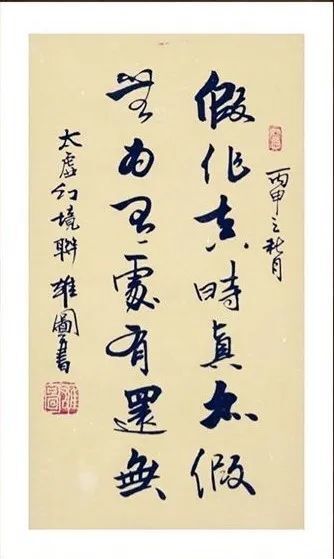 丙申之秋月
假作真時眞亦假
無为有處有還無
太虛幻境聯雄圖書